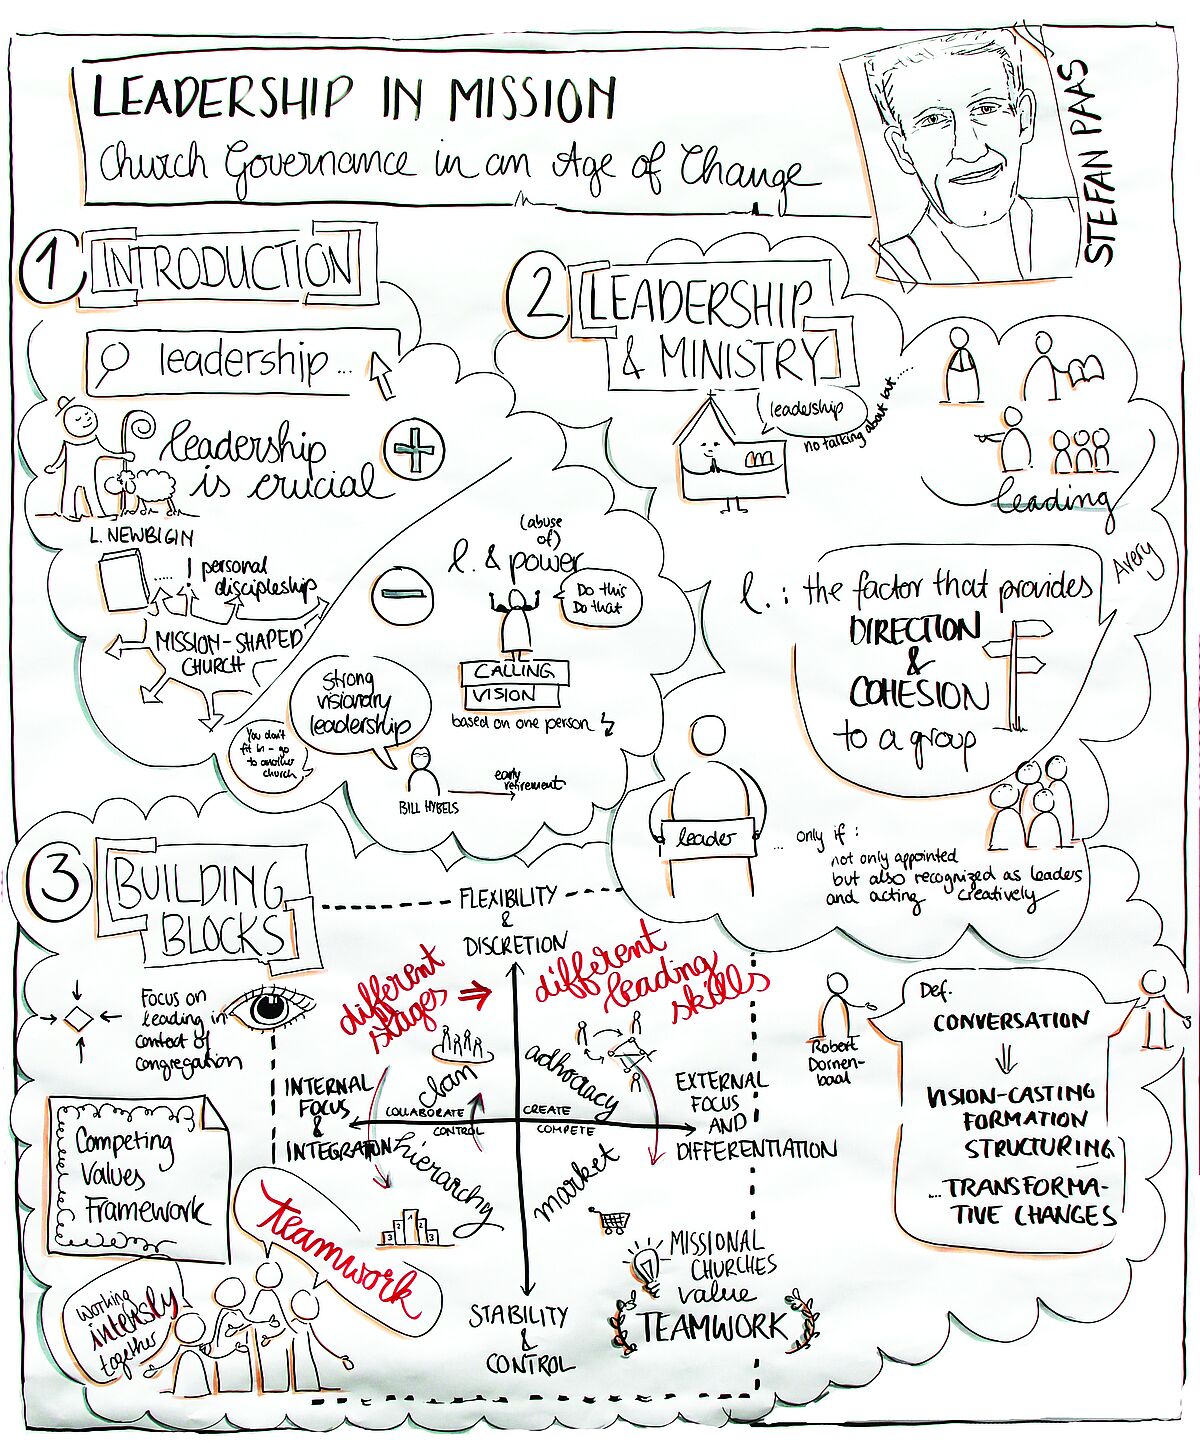 LEADERSHIP IN MISSION
Church Governance in an Age of Change
STEFAN PAAS
1 INTRODUCTION
leadership ...
leadership
is crucial
+
L. NEWBIGIN
..... !
personal
discipleship
MISSION-SHAPED
CHURCH
−
(abuse
of)
l. & power
Do this
Do that
CALLING
VISION
based on one person
Strong
visionary
leadership
You don't
fit in - go
to another
church
BILL HYBELS
early
retirement
2 LEADERSHIP
& MINISTRY
leadership
no talking about but.....
leading
l. : the factor that provides
DIRECTION
&
COHESION
to a group
Avery
leader
... only if :
not only appointed
but also recognized as leaders
and acting creatively
Def.
CONVERSATION
VISION-CASTING
FORMATION
STRUCTURING
...TRANSFORMA-
TIVE CHANGES
Robert
Dornen-
baal
3 BUILDING
BLOCKS
Focus on
leading in
context of
congregation
Competing
Values
Framework
FLEXIBILITY
&
DISCRETION
different
stages
different
leading
skills
clan
adhocracy
INTERNAL
FOCUS
&
INTEGRATION
COLLABORATE
CREATE
CONTROL
COMPETE
EXTERNAL
FOCUS
AND
DIFFERENTIATION
hierarchy
market
3 2 1 2 3
STABILITY
&
CONTROL
MISSIONAL
CHURCHES
value
TEAMWORK
teamwork
working
intensly
together